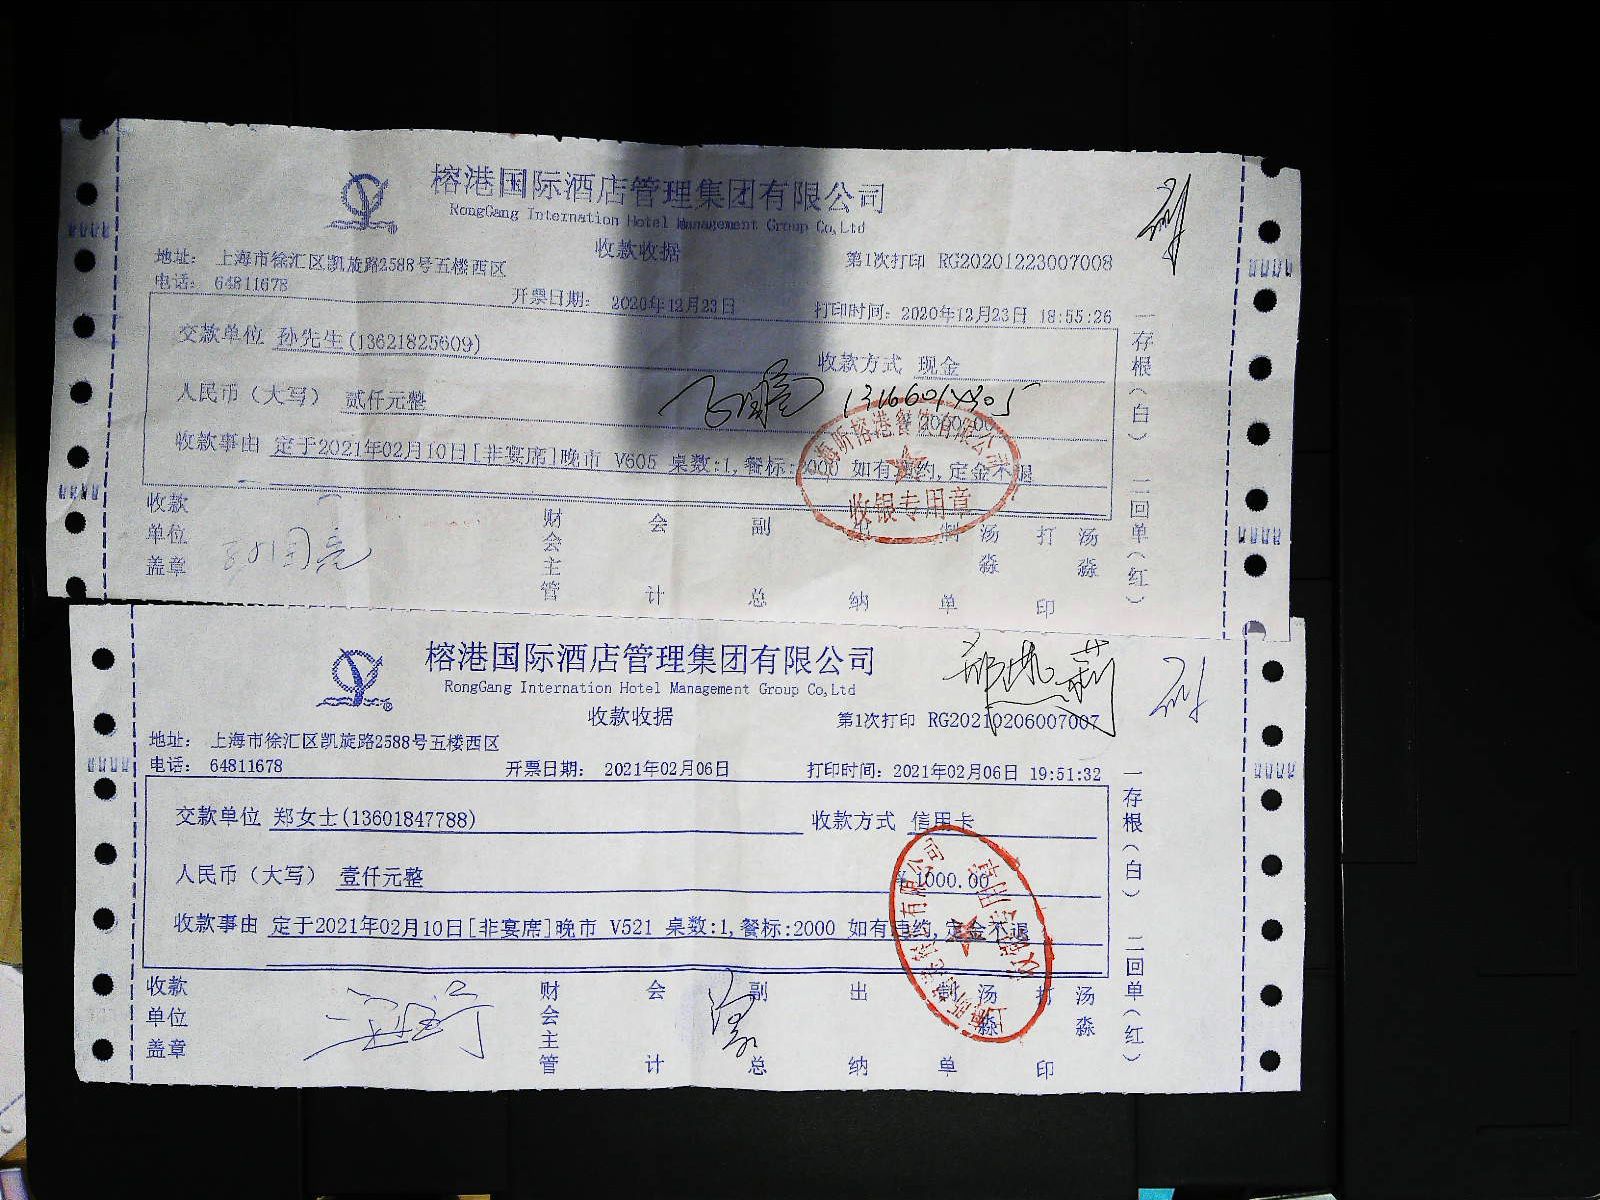 榕港国际酒店管理集团有限公司
RongGang Internation Hotel Management Group Co,Ltd
收款收据
地址： 上海市徐汇区凯旋路2588号五楼西区
第1次打印 RG20201223007008
电话： 64811678
开票日期： 2020年12月23日
打印时间：2020年12月23日 18:55:26
交款单位 孙先生(13621825609)
收款方式 现金
人民币（大写） 贰仟元整
2000.00
收款事由 定于2021年02月10日[非宴席]晚市 V605 桌数:1,餐标:2000 如有违约,定金不退
收银专用章
收款单位盖章
财会主管
会计
副总
出纳
制单
汤淼
打印
汤淼
一存根（白） 二回单（红）
榕港国际酒店管理集团有限公司
RongGang Internation Hotel Management Group Co,Ltd
收款收据
第1次打印 RG20210206007007
地址： 上海市徐汇区凯旋路2588号五楼西区
电话： 64811678
开票日期： 2021年02月06日
打印时间：2021年02月06日 19:51:32
交款单位 郑女士(13601847788)
收款方式 信用卡
人民币（大写） 壹仟元整
¥1000.00
收款事由 定于2021年02月10日[非宴席]晚市 V521 桌数:1,餐标:2000 如有违约,定金不退
收款单位盖章
财会主管
会计
副总
出纳
制单
汤淼
打印
汤淼
一存根（白） 二回单（红）